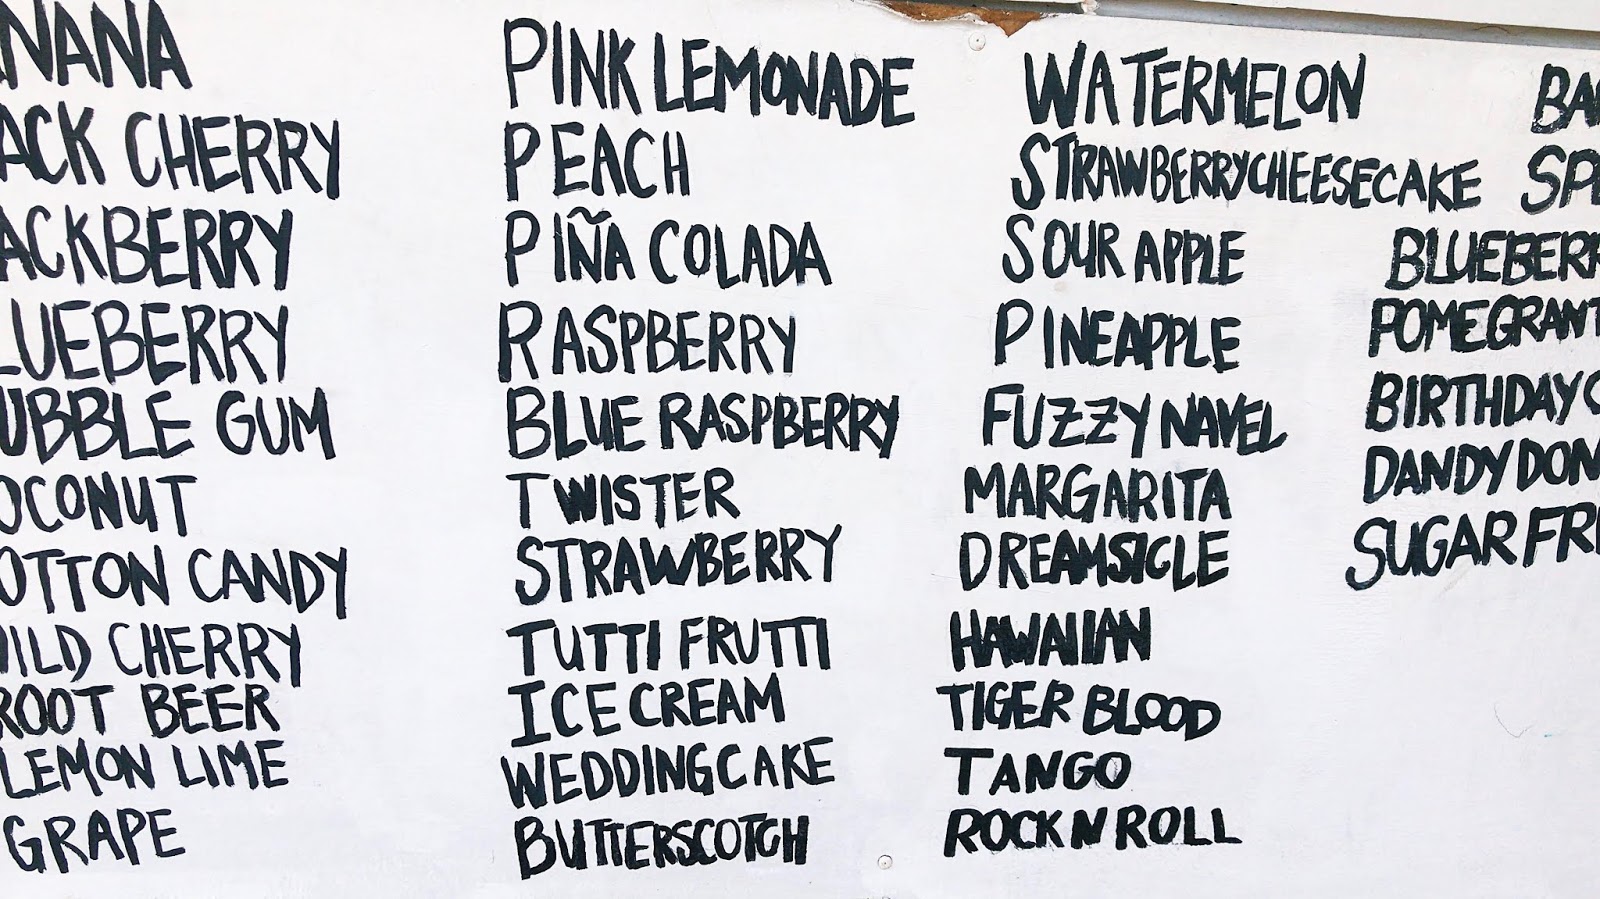 NANA
ACK CHERRY
ACKBERRY
LUEBERRY
UBBLE GUM
OCONUT
OTTON CANDY
WILD CHERRY
ROOT BEER
LEMON LIME
GRAPE
PINK LEMONADE
PEACH
PIÑA COLADA
RASPBERRY
BLUE RASPBERRY
TWISTER
STRAWBERRY
TUTTI FRUTTI
ICE CREAM
WEDDING CAKE
BUTTERSCOTCH
WATERMELON
STRAWBERRY CHEESECAKE
SOUR APPLE
PINEAPPLE
FUZZY NAVEL
MARGARITA
DREAMSICLE
HAWAIIAN
TIGER BLOOD
TANGO
ROCK N ROLL
BA
SP
BLUEBERR
POMEGRANT
BIRTHDAY C
DANDY DON
SUGAR FR